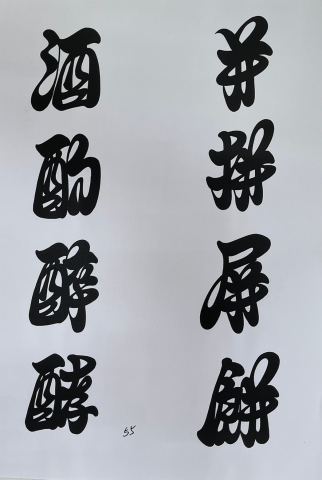 并
拼
屏
餅
酒
酌
酔
酵
55